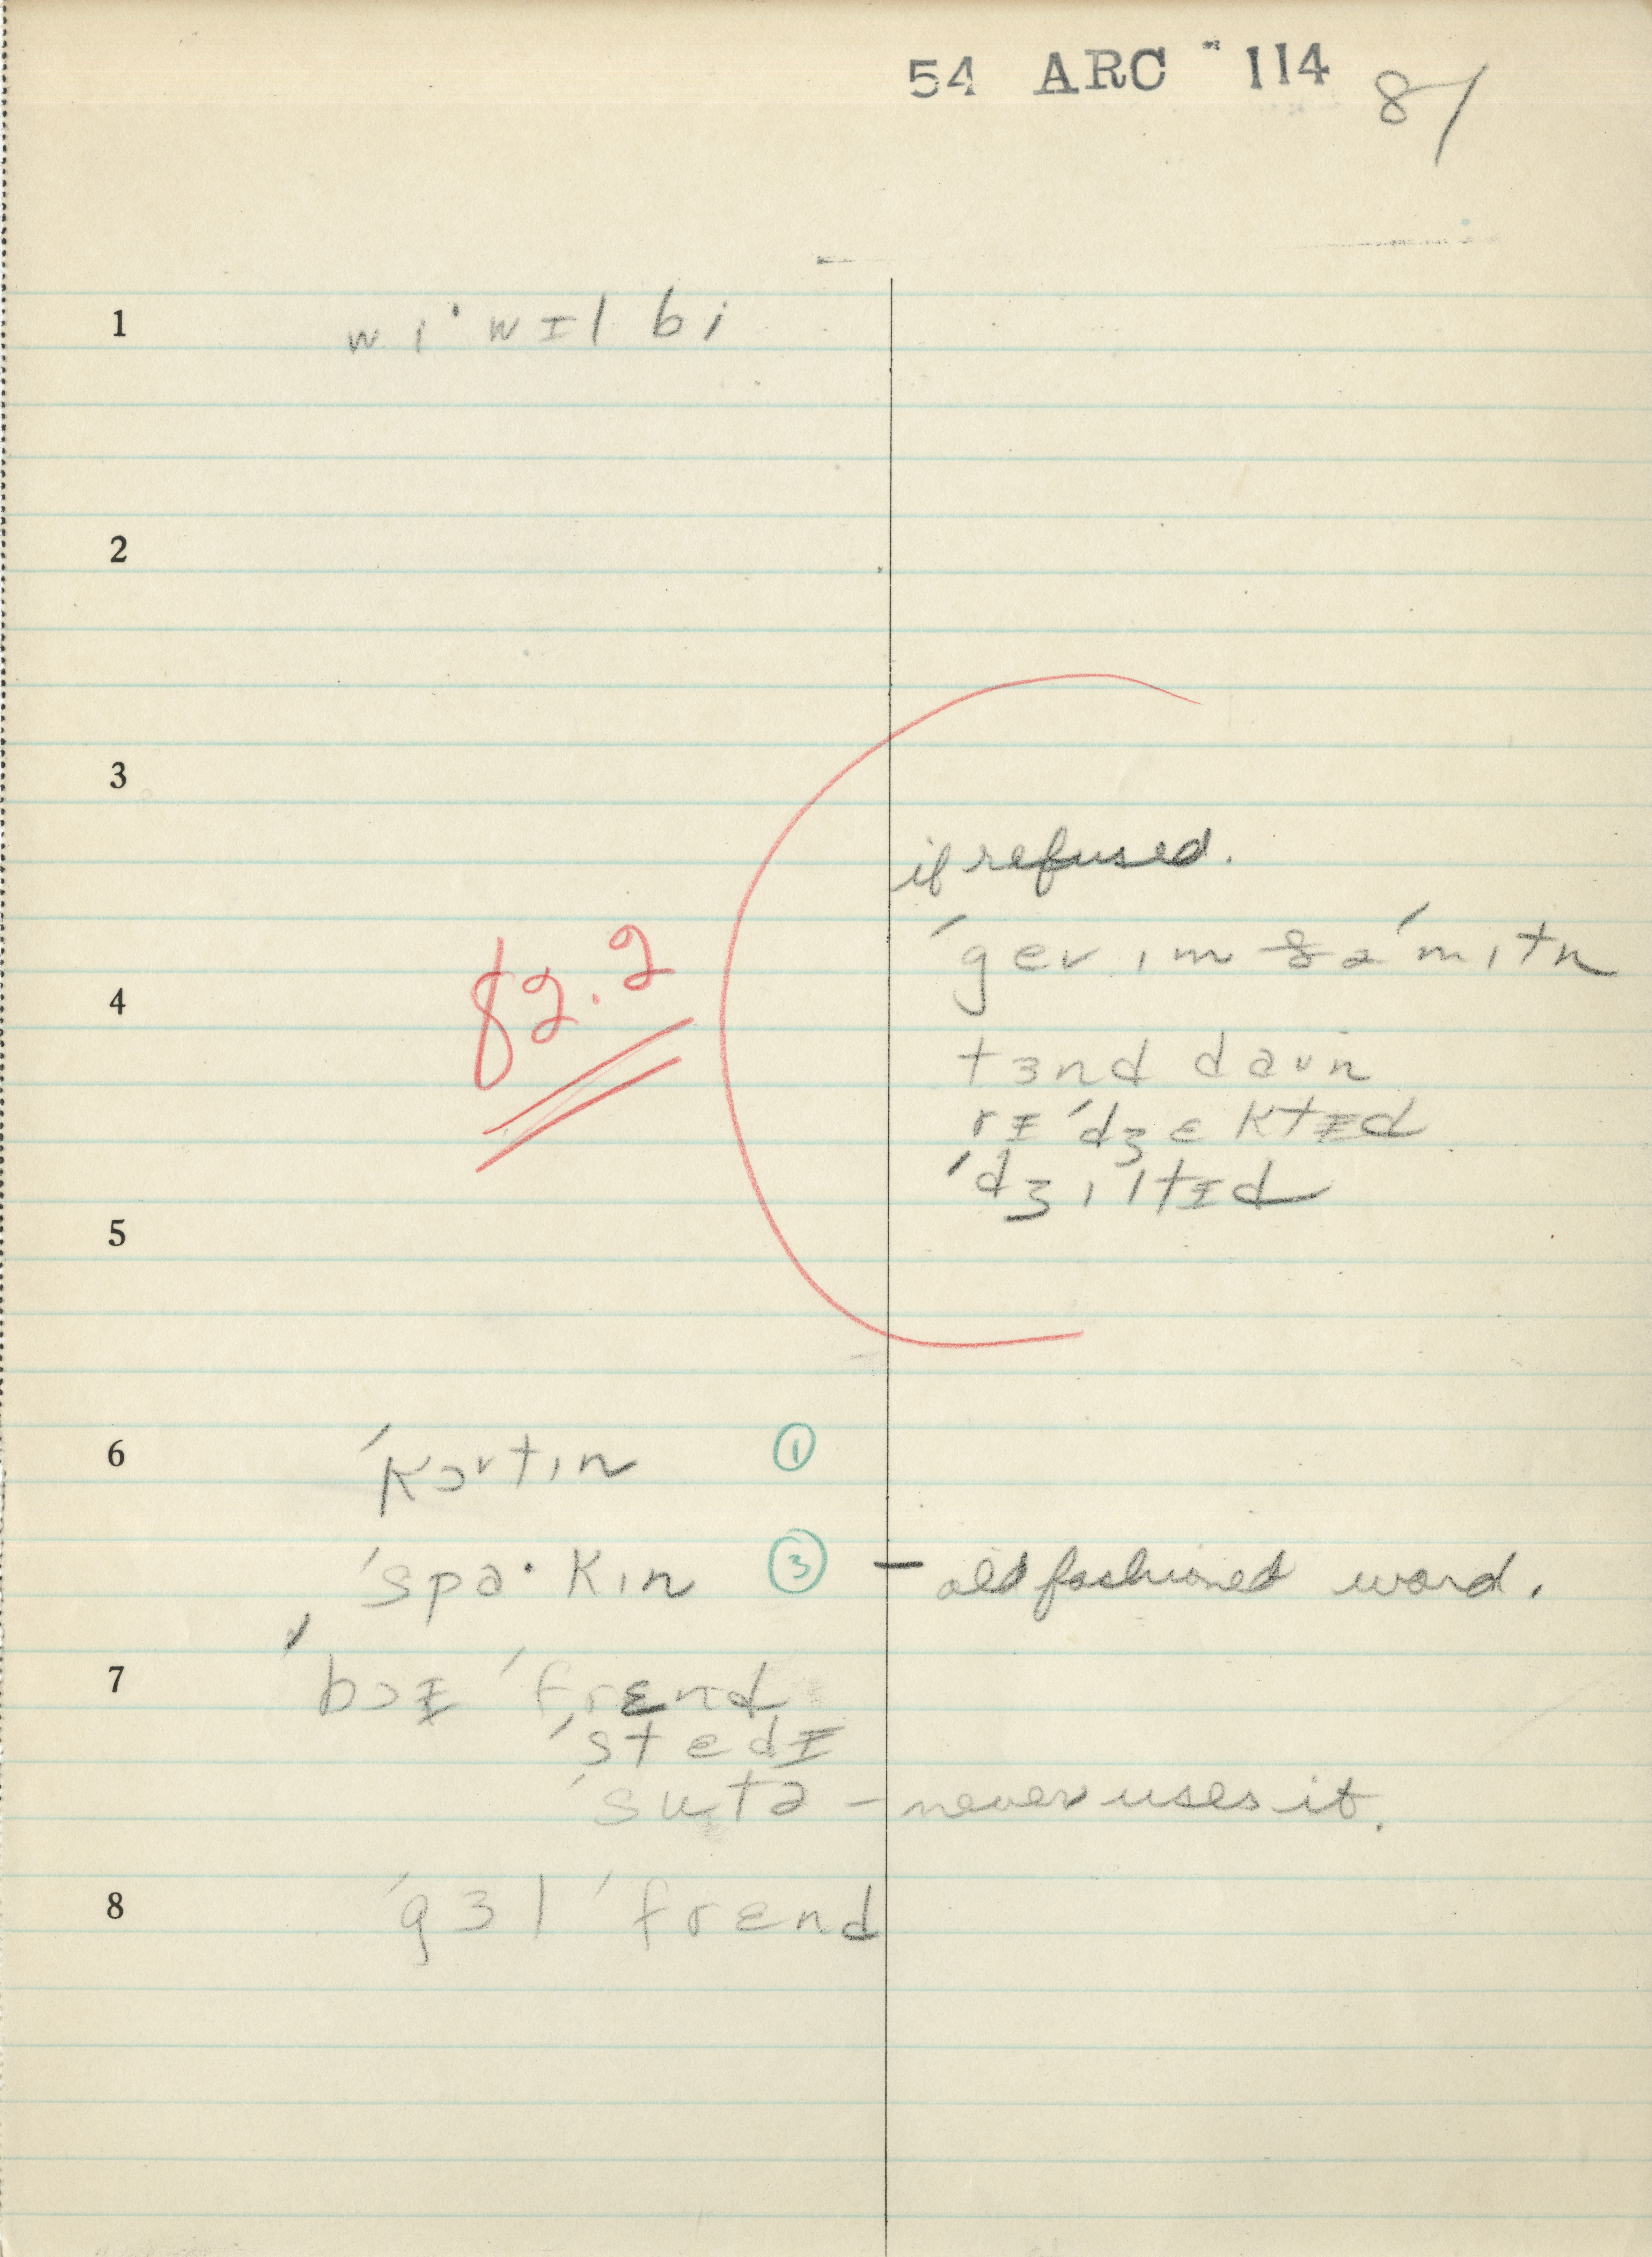 54 ARC 114 81
1 wi· wɪl bi
2
3
if refused.
ˈgev ɪm ðə ˈmɪtn
4 82.2
tɜnd daʊn
rɪˈdʒɛktɪd
ˈdʒɪltɪd
5
6 ˈkɔrtɪn ①
ˈspa·kɪn ③ – old fashioned word.
7 ˈbɔɪ ˈfrɛnd
ˈstedɪ
ˈsutə – never uses it.
8 ˈgɜl ˈfrɛnd